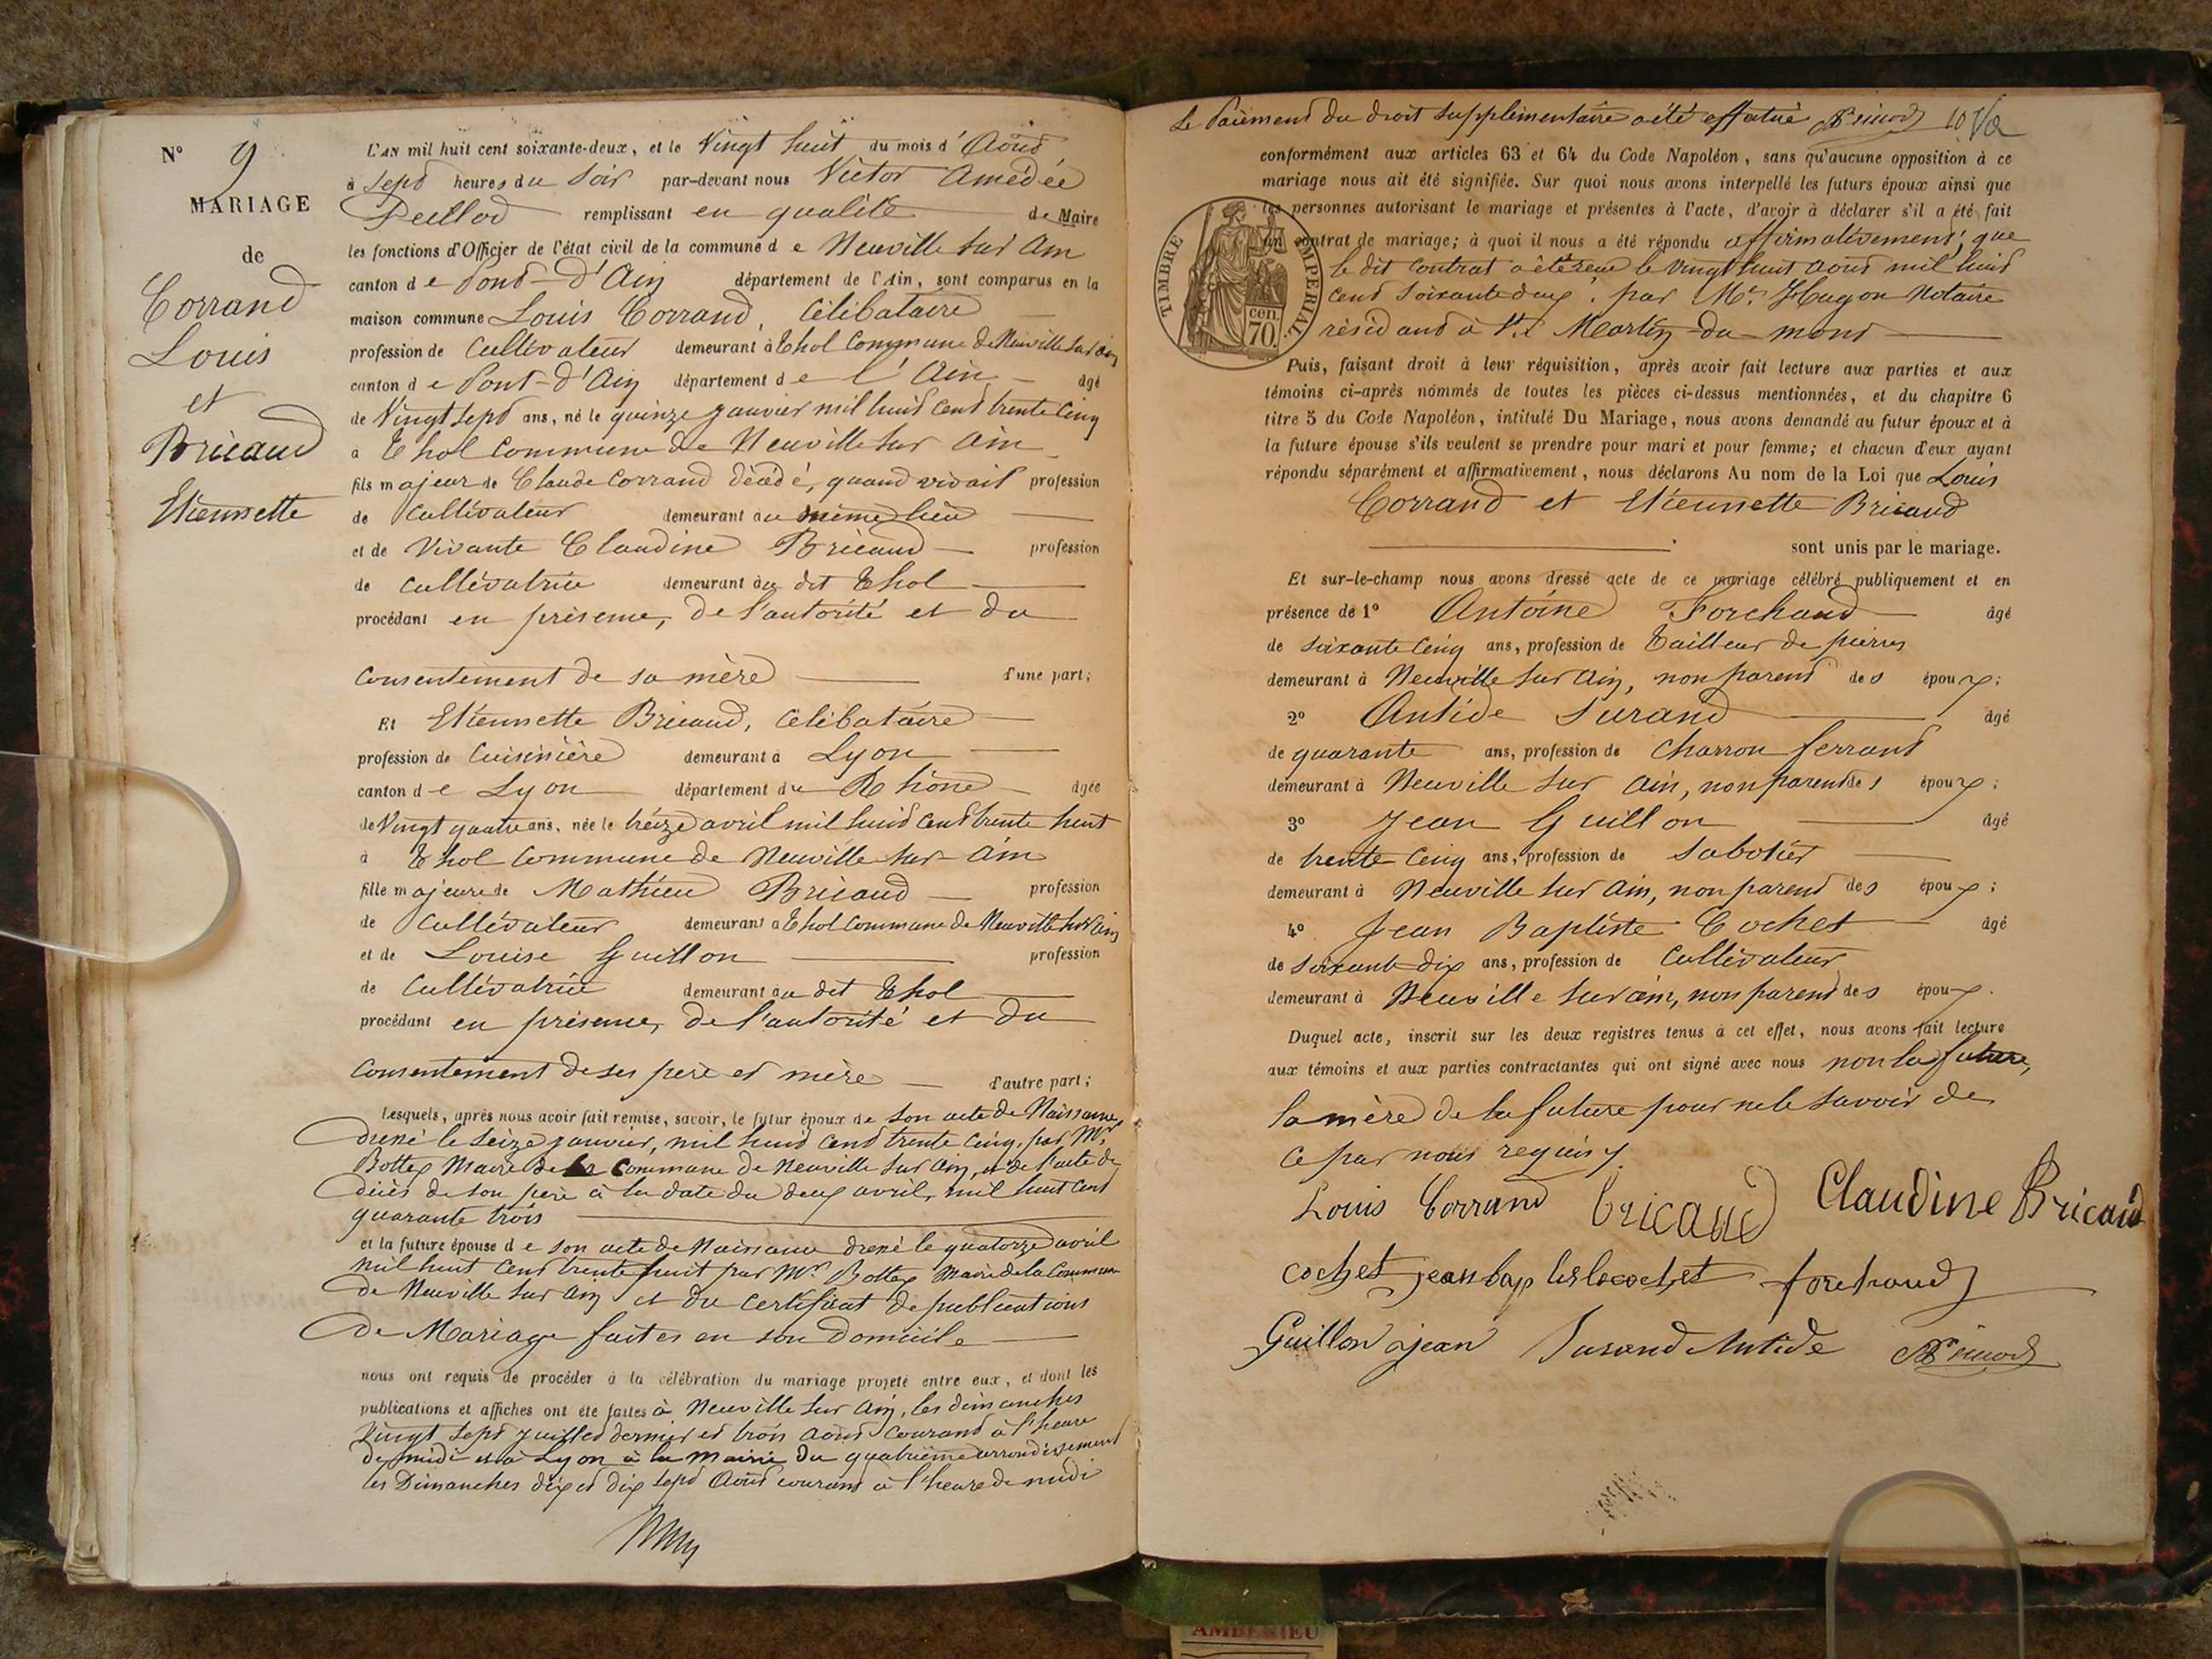 N° 9
MARIAGE
de
Corrand
Louis
et
Bricaud
Etiennette
L'AN mil huit cent soixante-deux, et le Vingt huit du mois d'Août
à Sept heures du Soir par-devant nous Victor Amédée
remplissant en qualité de Maire
les fonctions d'Officier de l'état civil de la commune de Neuville sur Ain
canton de Pont-d'Ain département de l'Ain, sont comparus en la
maison commune Louis Corrand, Célibataire
profession de Cultivateur demeurant à Thol Commune de Neuville sur Ain
canton de Pont-d'Ain département de l'Ain âgé
de Vingt Sept ans, né le quinze janvier mil huit cent trente Cinq
à Thol Commune de Neuville sur Ain
fils majeur de Claude Corrand décédé, quand vivait profession
de Cultivateur demeurant au même lieu
et de Vivante Claudine Bricaud profession
de Cultivatrice demeurant au dit Thol
procédant en présence, de l'autorité et du
consentement de sa mère d'une part;
Et Etiennette Bricaud, Célibataire
profession de Cuisinière demeurant à Lyon
canton de Lyon département du Rhône âgée
de Vingt quatre ans, née le treize avril mil huit cent trente huit
à Thol Commune de Neuville sur Ain
fille majeure de Mathieu Bricaud profession
de Cultivateur demeurant à Thol Commune de Neuville sur Ain
et de Louise Guillon profession
de Cultivatrice demeurant au dit Thol
procédant en présence, de l'autorité et du
consentement de ses père et mère d'autre part;
Lesquels, après nous avoir fait remise, savoir, le futur époux de son acte de Naissance
dressé le Seize janvier, mil huit cent trente Cinq, par Mr
Bottex Maire de la Commune de Neuville sur Ain, et de l'acte de
décès de son père à la date du deux avril, mil huit cent
quarante trois
et la future épouse de son acte de Naissance dressé le quatorze avril
mil huit cent trente huit par Mr Bottex Maire de la Commune
de Neuville sur Ain et du certificat de publications
de Mariage faites en son domicile
nous ont requis de procéder à la célébration du mariage projeté entre eux, et dont les
publications et affiches ont été faites à Neuville sur Ain, les dimanches
Vingt Sept juillet dernier et trois Août courant à l'heure
de midi et à Lyon à la Mairie du quatrième arrondissement
les Dimanches dix et dix sept Août courant à l'heure de midi
Le Paiement du droit supplémentaire a été effectué
conformément aux articles 63 et 64 du Code Napoléon, sans qu'aucune opposition à ce
mariage nous ait été signifiée. Sur quoi nous avons interpellé les futurs époux ainsi que
les personnes autorisant le mariage et présentes à l'acte, d'avoir à déclarer s'il a été fait
un contrat de mariage; à quoi il nous a été répondu affirmativement, que
le dit contrat a été reçu le vingt huit août mil huit
cent soixante deux, par Me Hugon Notaire
résidant à St Martin-du-mont
TIMBRE IMPÉRIAL
cen. 70.
Puis, faisant droit à leur réquisition, après avoir fait lecture aux parties et aux
témoins ci-après nommés de toutes les pièces ci-dessus mentionnées, et du chapitre 6
titre 5 du Code Napoléon, intitulé Du Mariage, nous avons demandé au futur époux et à
la future épouse s'ils veulent se prendre pour mari et pour femme; et chacun d'eux ayant
répondu séparément et affirmativement, nous déclarons Au nom de la Loi que Louis
Corrand et Etiennette Bricaud
sont unis par le mariage.
Et sur-le-champ nous avons dressé acte de ce mariage célébré publiquement et en
présence de 1° Antoine Forchaud âgé
de soixante Cinq ans, profession de Tailleur de pierres
demeurant à Neuville sur Ain, non parent des époux;
2° Antide Durand âgé
de quarante ans, profession de Charron ferrant
demeurant à Neuville sur Ain, non parent des époux;
3° Jean Guillon âgé
de trente Cinq ans, profession de Sabotier
demeurant à Neuville sur Ain, non parent des époux;
4° Jean Baptiste Cochet âgé
de Soixante dix ans, profession de Cultivateur
demeurant à Neuville sur Ain, non parent des époux.
Duquel acte, inscrit sur les deux registres tenus à cet effet, nous avons fait lecture
aux témoins et aux parties contractantes qui ont signé avec nous non la future,
la mère de la future pour ne le savoir de
ce par nous requis
Louis Corrand bricaud Claudine Bricaud
cochet jean forchaud
Guillon jean Durand Antide
AMBÉRIEU